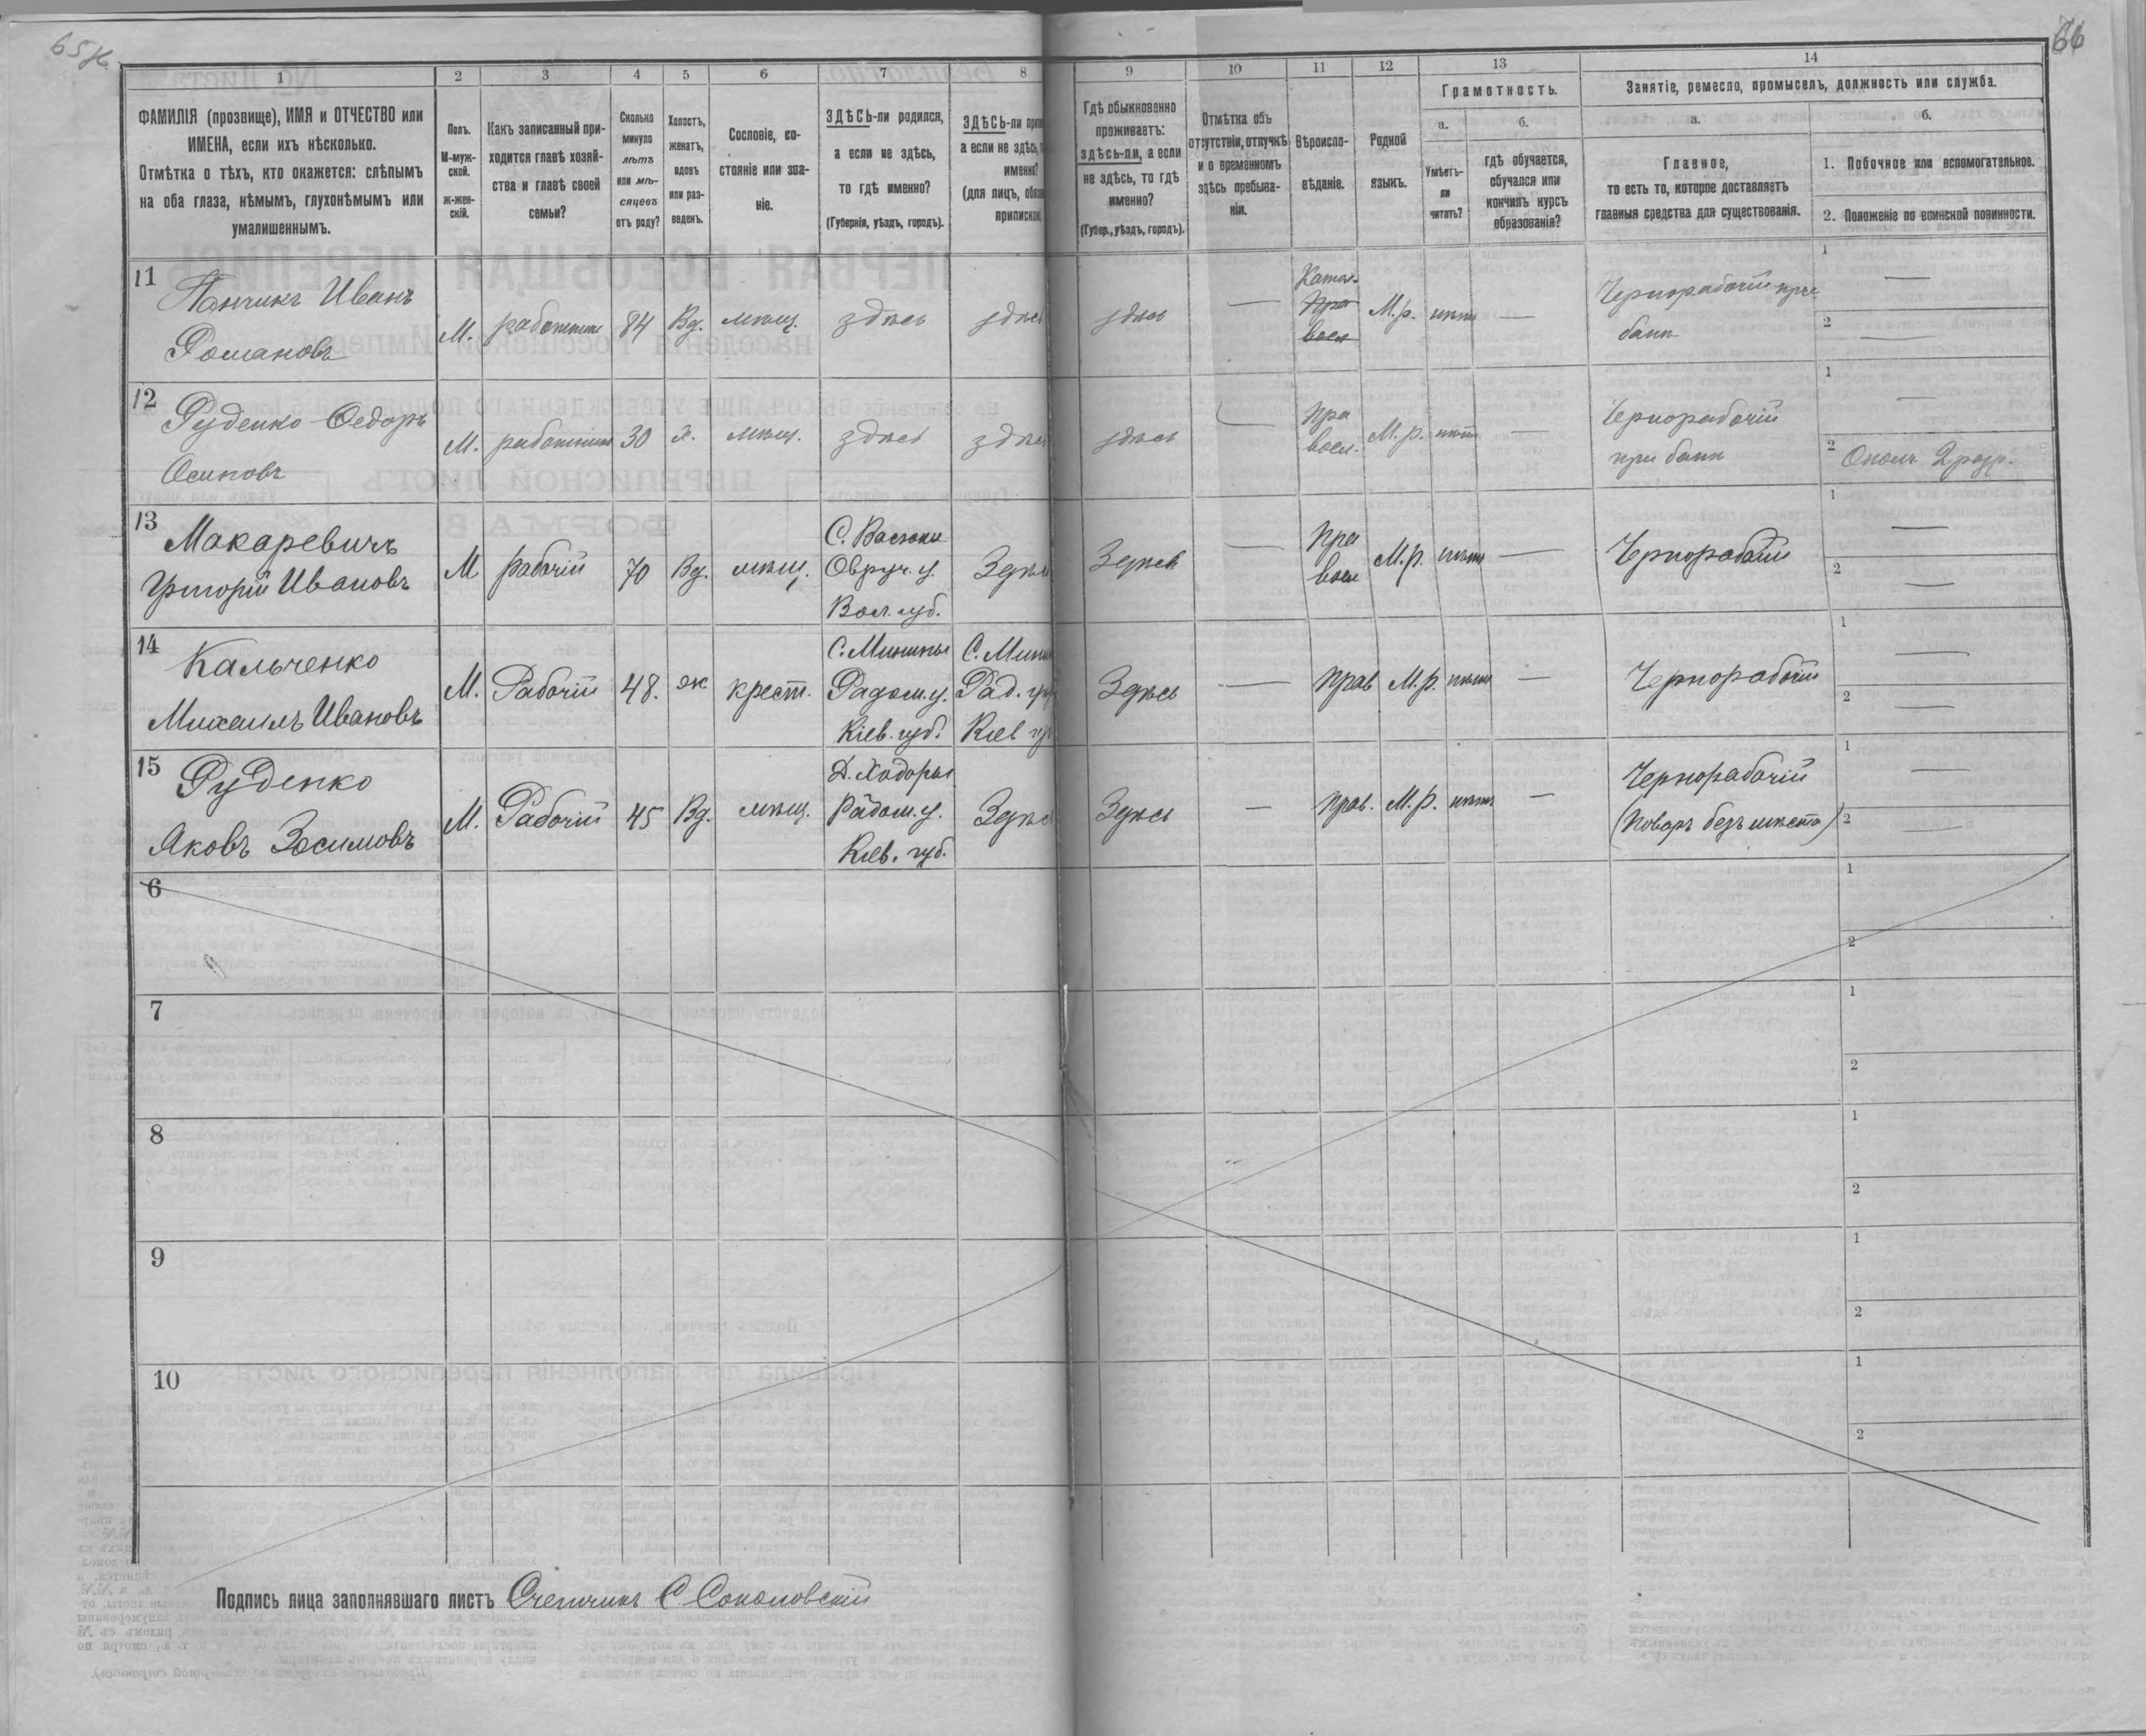 65 Ж.
66
1
2
3
4
5
6
7
8
9
10
11
12
13
14
ФАМИЛІЯ (прозвище), ИМЯ и ОТЧЕСТВО или
ИМЕНА, если ихъ нѣсколько.
Отмѣтка о тѣхъ, кто окажется: слѣпымъ
на оба глаза, нѣмымъ, глухонѣмымъ или
умалишеннымъ.
Полъ.
М-муж-
ской.
ж-жен-
скій.
Какъ записанный при-
ходится главѣ хозяй-
ства и главѣ своей
семьи?
Сколько
минуло
лѣтъ
или мѣ-
сяцевъ
отъ роду?
Холостъ,
женатъ,
вдовъ
или раз-
веденъ.
Сословіе, со-
стояніе или зва-
ніе.
ЗДѢСЬ-ли родился,
а если не здѣсь,
то гдѣ именно?
(Губернія, уѣздъ, городъ).
ЗДѢСЬ-ли
а если не здѣсь,
именно?
(для лицъ,
Гдѣ обыкновенно
проживаетъ:
здѣсь-ли, а если
не здѣсь, то гдѣ
именно?
(Губер., уѣздъ, городъ).
Отмѣтка объ
отсутствіи, отлучкѣ
и о временномъ
здѣсь пребыва-
ніи.
Вѣроиспо-
вѣданіе.
Родной
языкъ.
Грамотность.
а.
Умѣетъ-
ли
читать?
б.
гдѣ обучается,
обучался или
кончилъ курсъ
образованія?
Занятіе, ремесло, промыселъ, должность или служба.
а.
Главное,
то есть то, которое доставляетъ
главныя средства для существованія.
б.
1. Побочное или вспомогательное.
2. Положеніе по воинской повинности.
11
Панчикъ Иванъ
Романовъ
М.
работникъ
84
Вд.
мѣщ.
здѣсь
здѣсь
здѣсь
—
Катол.
Пра
восл
М.р.
нѣтъ
—
Чернорабочій при
банѣ
1 —
2 —
12
Руденко Ѳедоръ
Осиповъ
М.
работникъ
30
х.
мѣщ.
здѣсь
здѣсь
здѣсь
—
Пра
восл.
М.р.
нѣтъ
—
Чернорабочій
при банѣ
1 —
2 Ополч. 2 разр.
13
Макаревичъ
Григорій Ивановъ
М
рабочій
70
Вд.
мѣщ.
С. Васюки
Овруч. у.
Вол. губ.
Здѣсь
Здѣсь
—
Пра
восл
М.р.
нѣтъ
—
Чернорабочій
1 —
2 —
14
Кальченко
Михаилъ Ивановъ
М.
Рабочій
48.
ж
крест.
С. Минины
Радом. у.
Кіев. губ.
С. Мини
Рад. у
Кіев гу
Здѣсь
—
Прав
М.р.
нѣтъ
—
Чернорабочій
1 —
2 —
15
Руденко
Яковъ Зосимовъ
М.
Рабочій
45
Вд.
мѣщ.
Д. Ходоры
Радом. у.
Кіев. губ.
Здѣсь
Здѣсь
—
Прав.
М.р.
нѣтъ
—
Чернорабочій
(Поваръ безъ мѣста)
1 —
2 —
6
1
2
7
1
2
8
1
2
9
1
2
10
1
2
Подпись лица заполнявшаго листъ Счетчикъ С Соколовскій